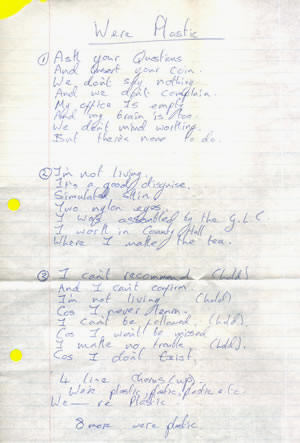 Were Plastic
① Ask your Questions
And insert your coin.
We don't say nothing
And we don't complain.
My office Is empty
And my brain is too.
We don't mind working.
But there's none to do.
② I'm not living
It's a good disguise.
Simulated skin
Two nylon eyes.
I was assembled by the G.L.C.
I work in County Hall
Where I make the tea.
③ I can't recommend (hold)
And I can't confirm.
I'm not living (hold)
Cos I never learn.
I can't be followed (hold).
Cos I won't be missed
I make no trouble (hold).
Cos I don't Exist.
4 line chorus (up).
Were plastic plastic plastic etc
We—re Plastic
8 more were plastic.